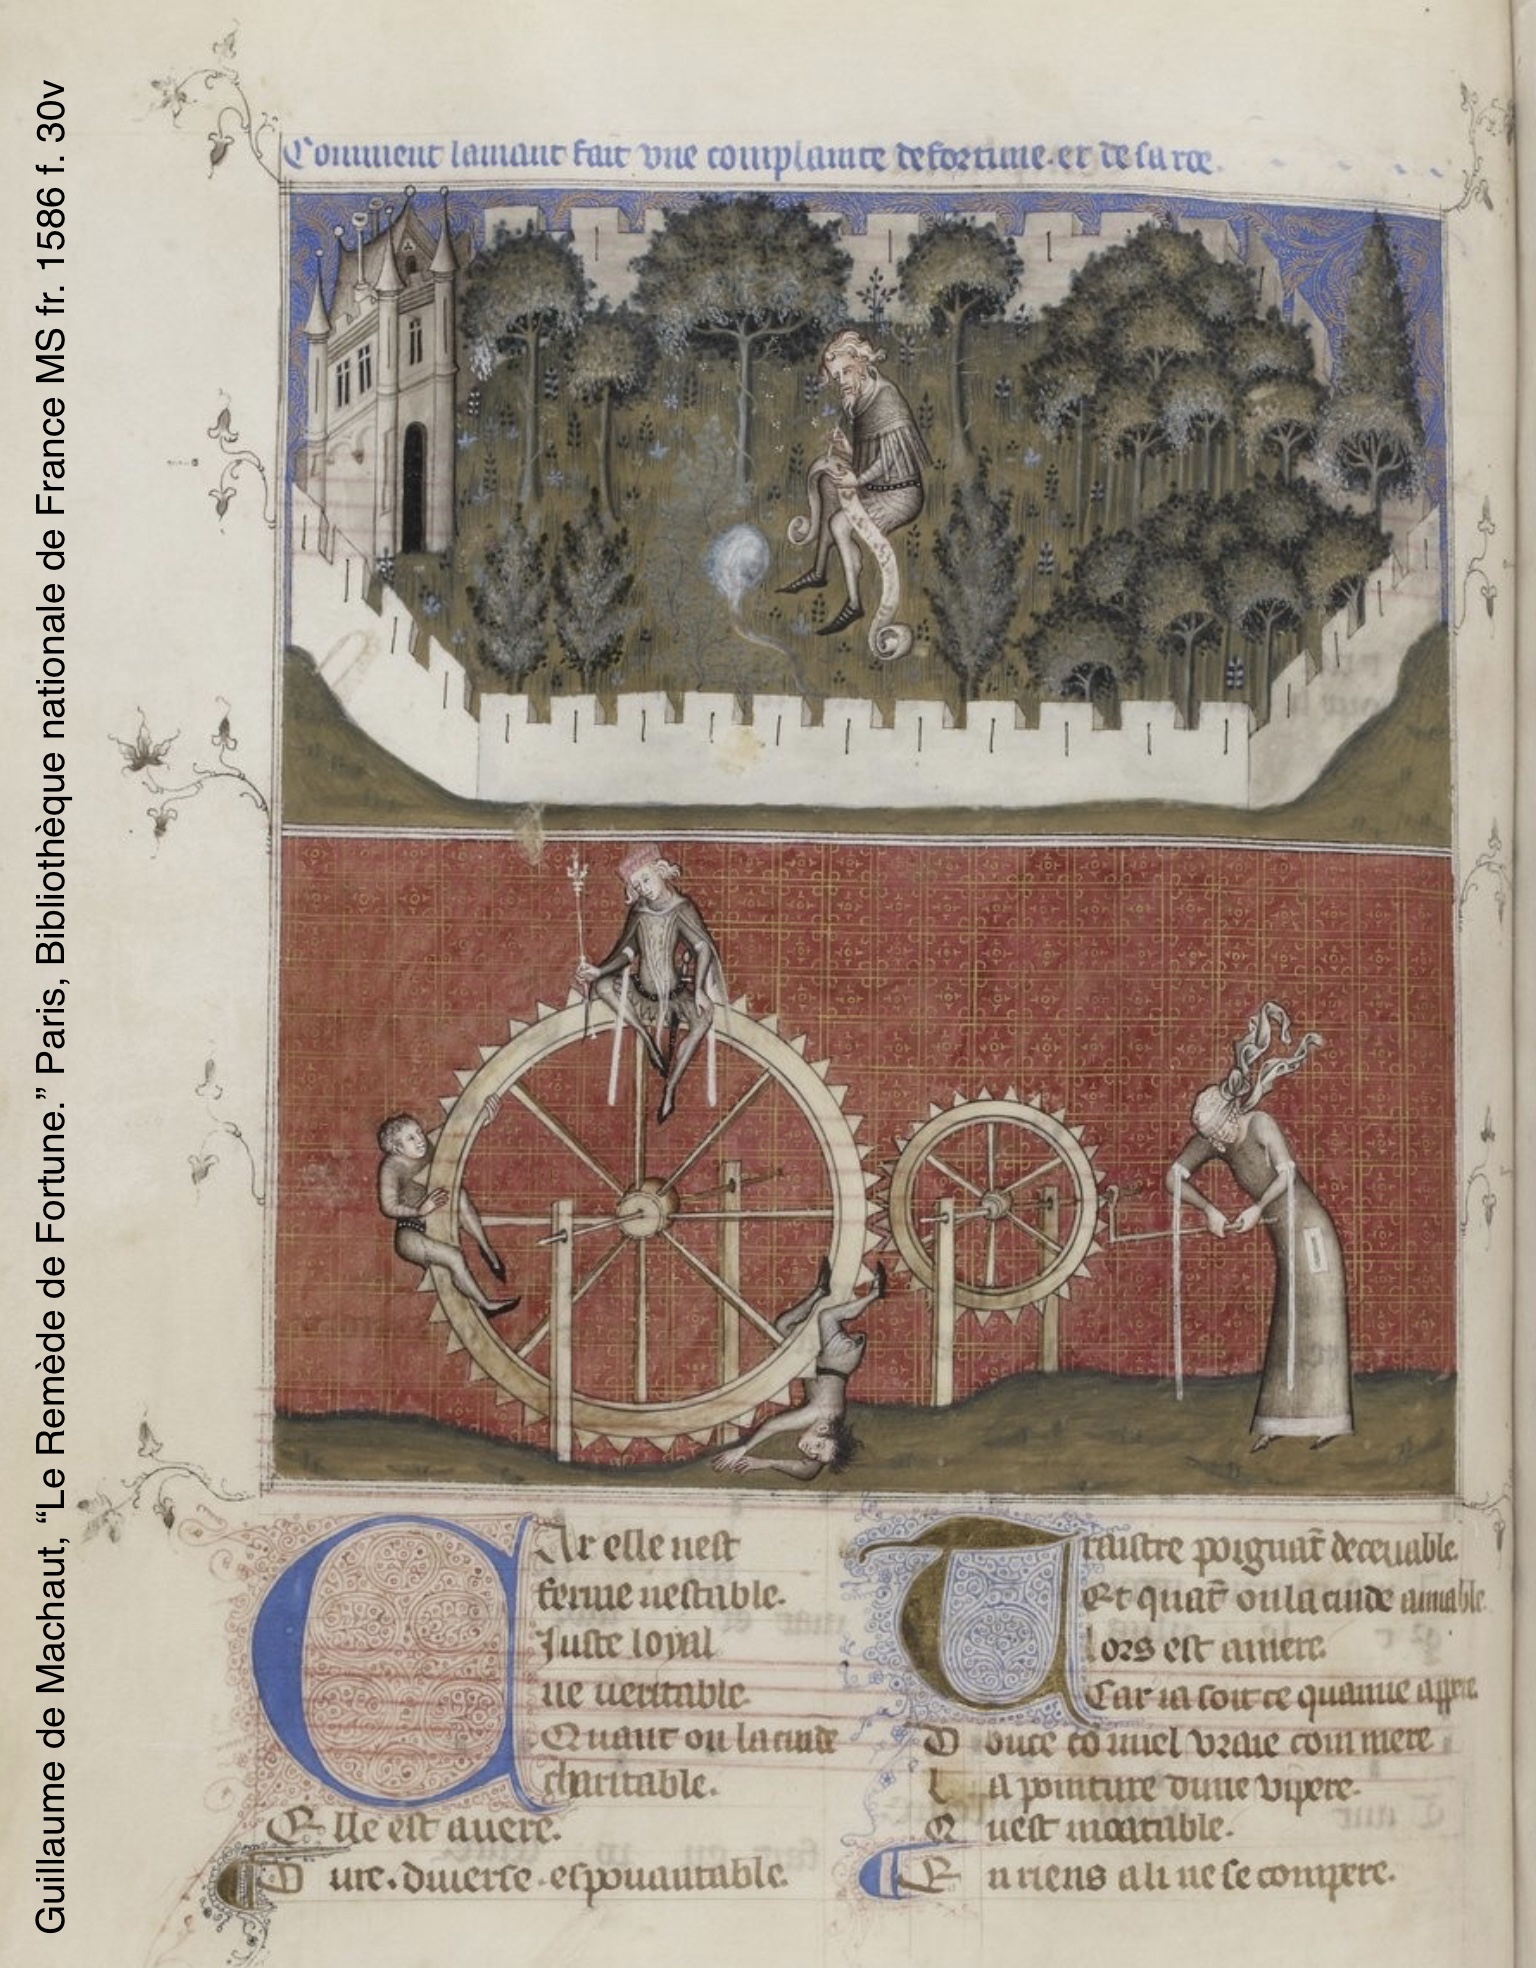 Guillaume de Machaut, “Le Remède de Fortune.” Paris, Bibliothèque nationale de France MS fr. 1586 f. 30v
Comment lamant fait vne complainte de fortune. et de sa roe.
Car elle nest
ferme nestable.
Juste loyal
ne ueritable.
Quant on la cuide
charitable.
Elle est auere.
Dure. diuerse. espouantable.
Traistre poignāt deceuable.
Et quāt on la cuide amiable
lors est amere.
Car ia soit ce quamie appere.
Douce cō miel vraie com mere
La pointure dune vipere.
Quest incurable.
En riens a li ne se compere.